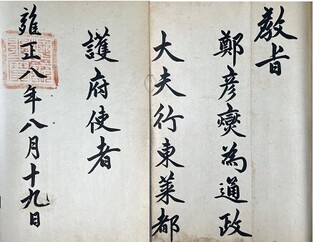 敎旨
鄭彦燮為通政
大夫行東萊都
護府使者
雍正八年八月十九日